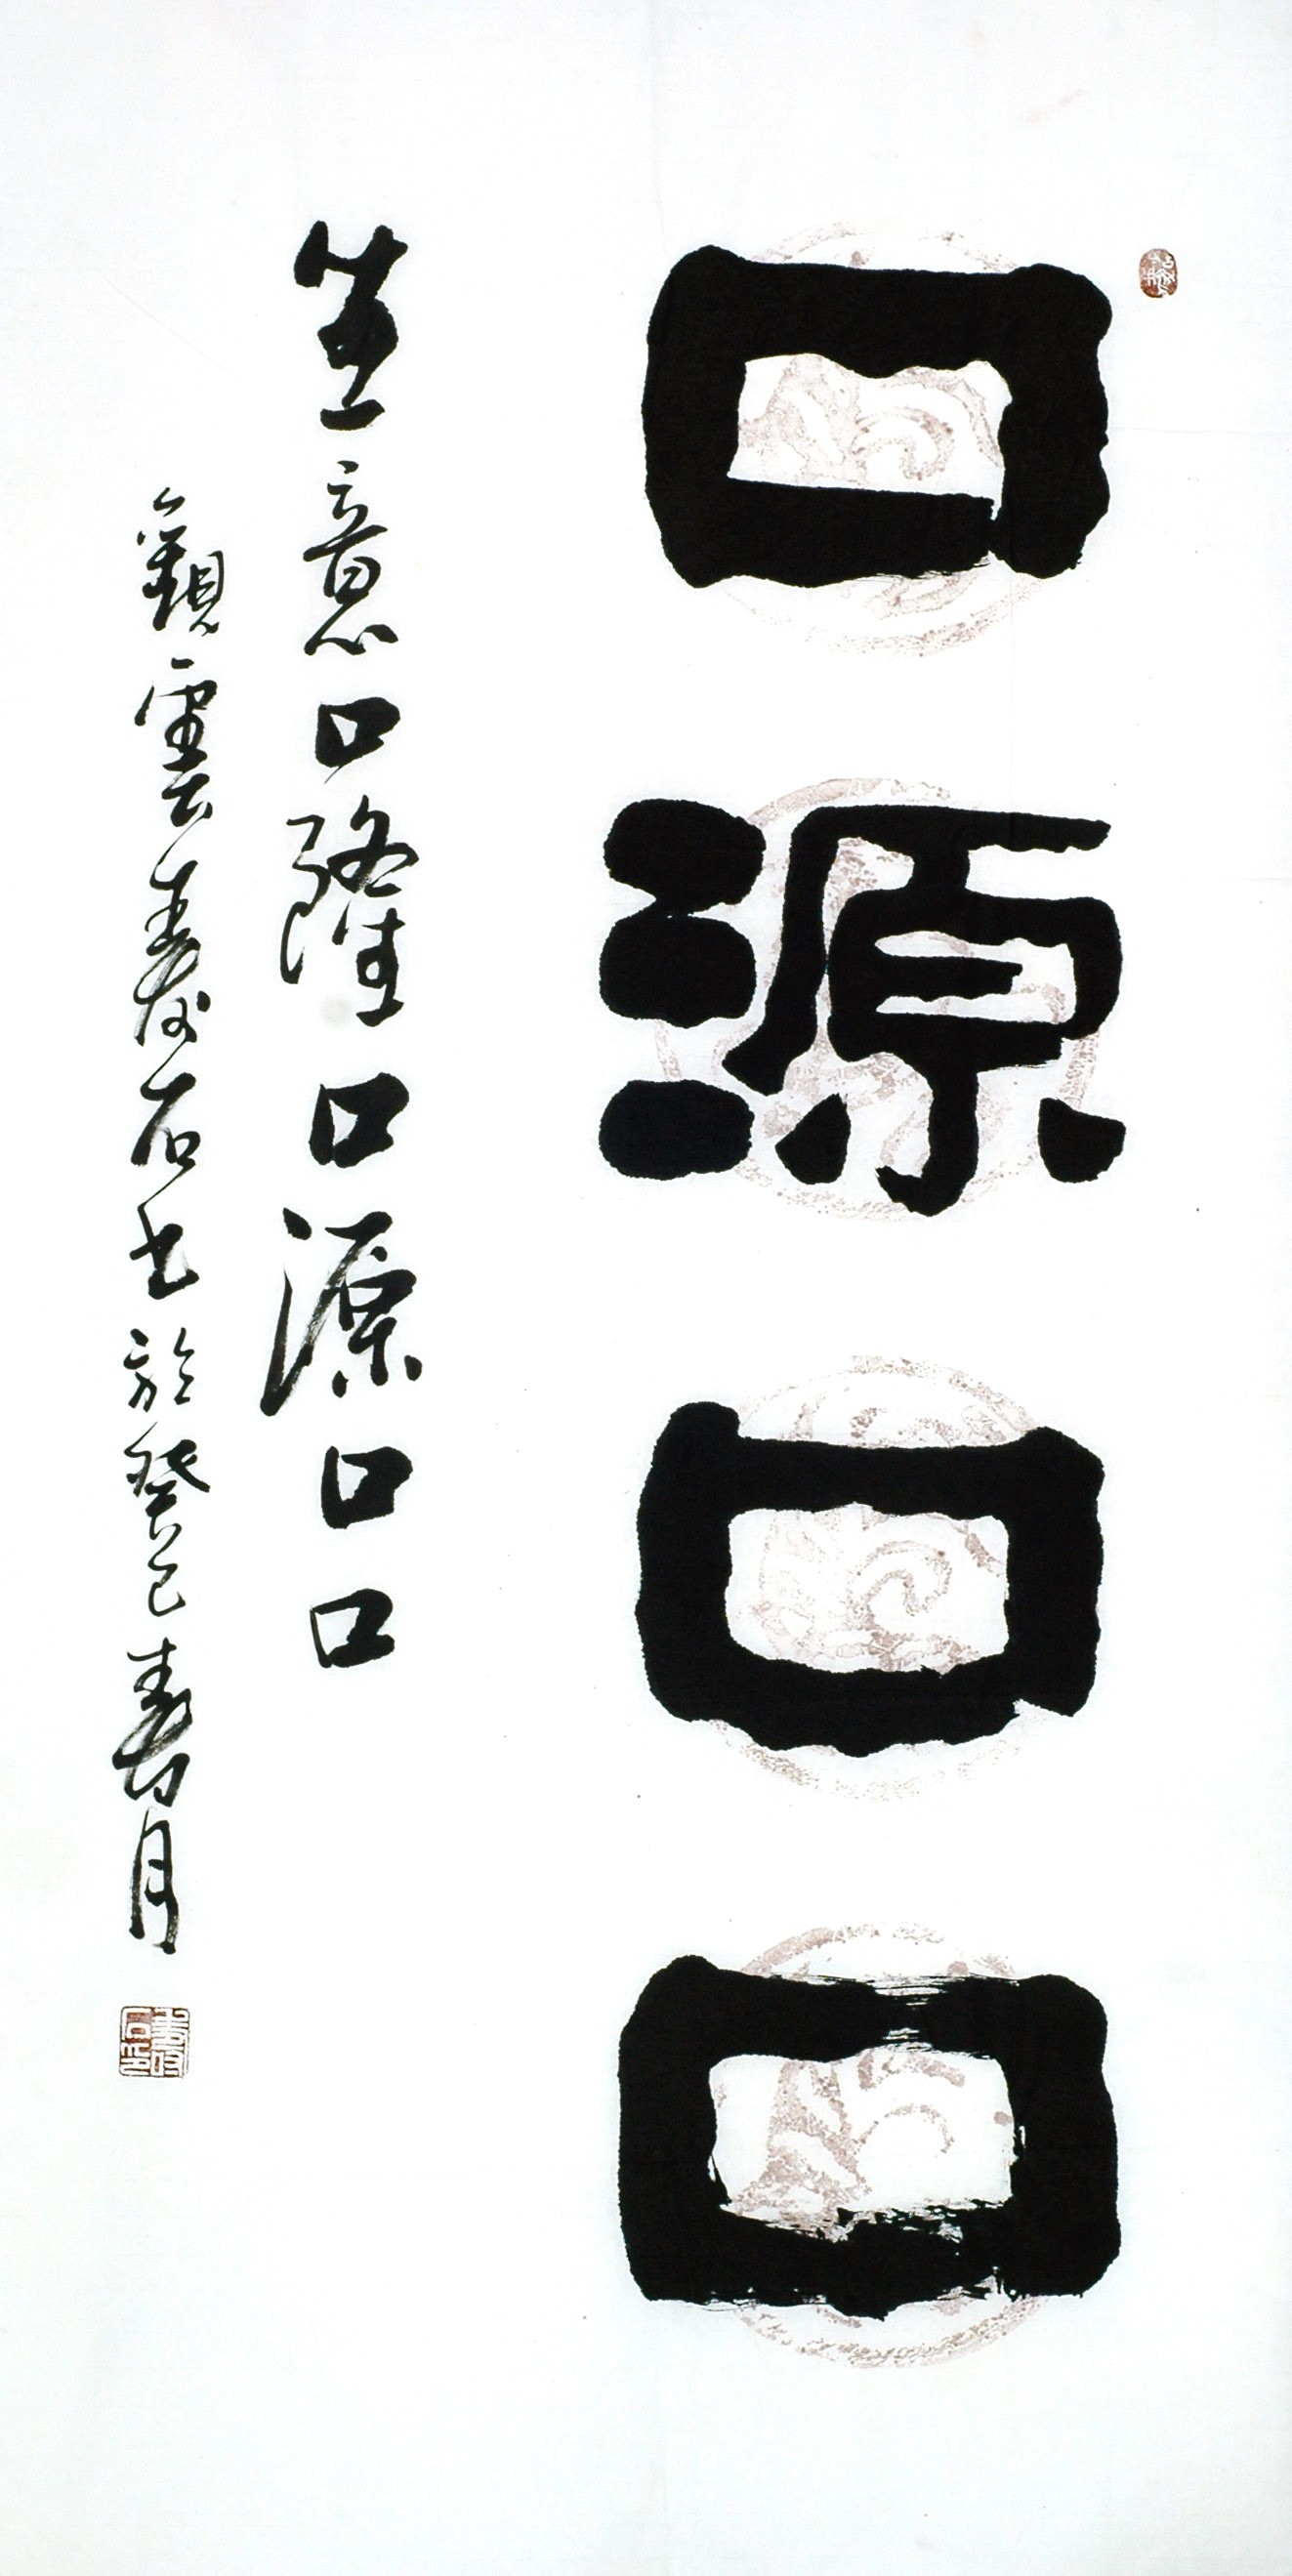 口源口口
生意口隆口源口口
觀雲壽石書於癸巳春月